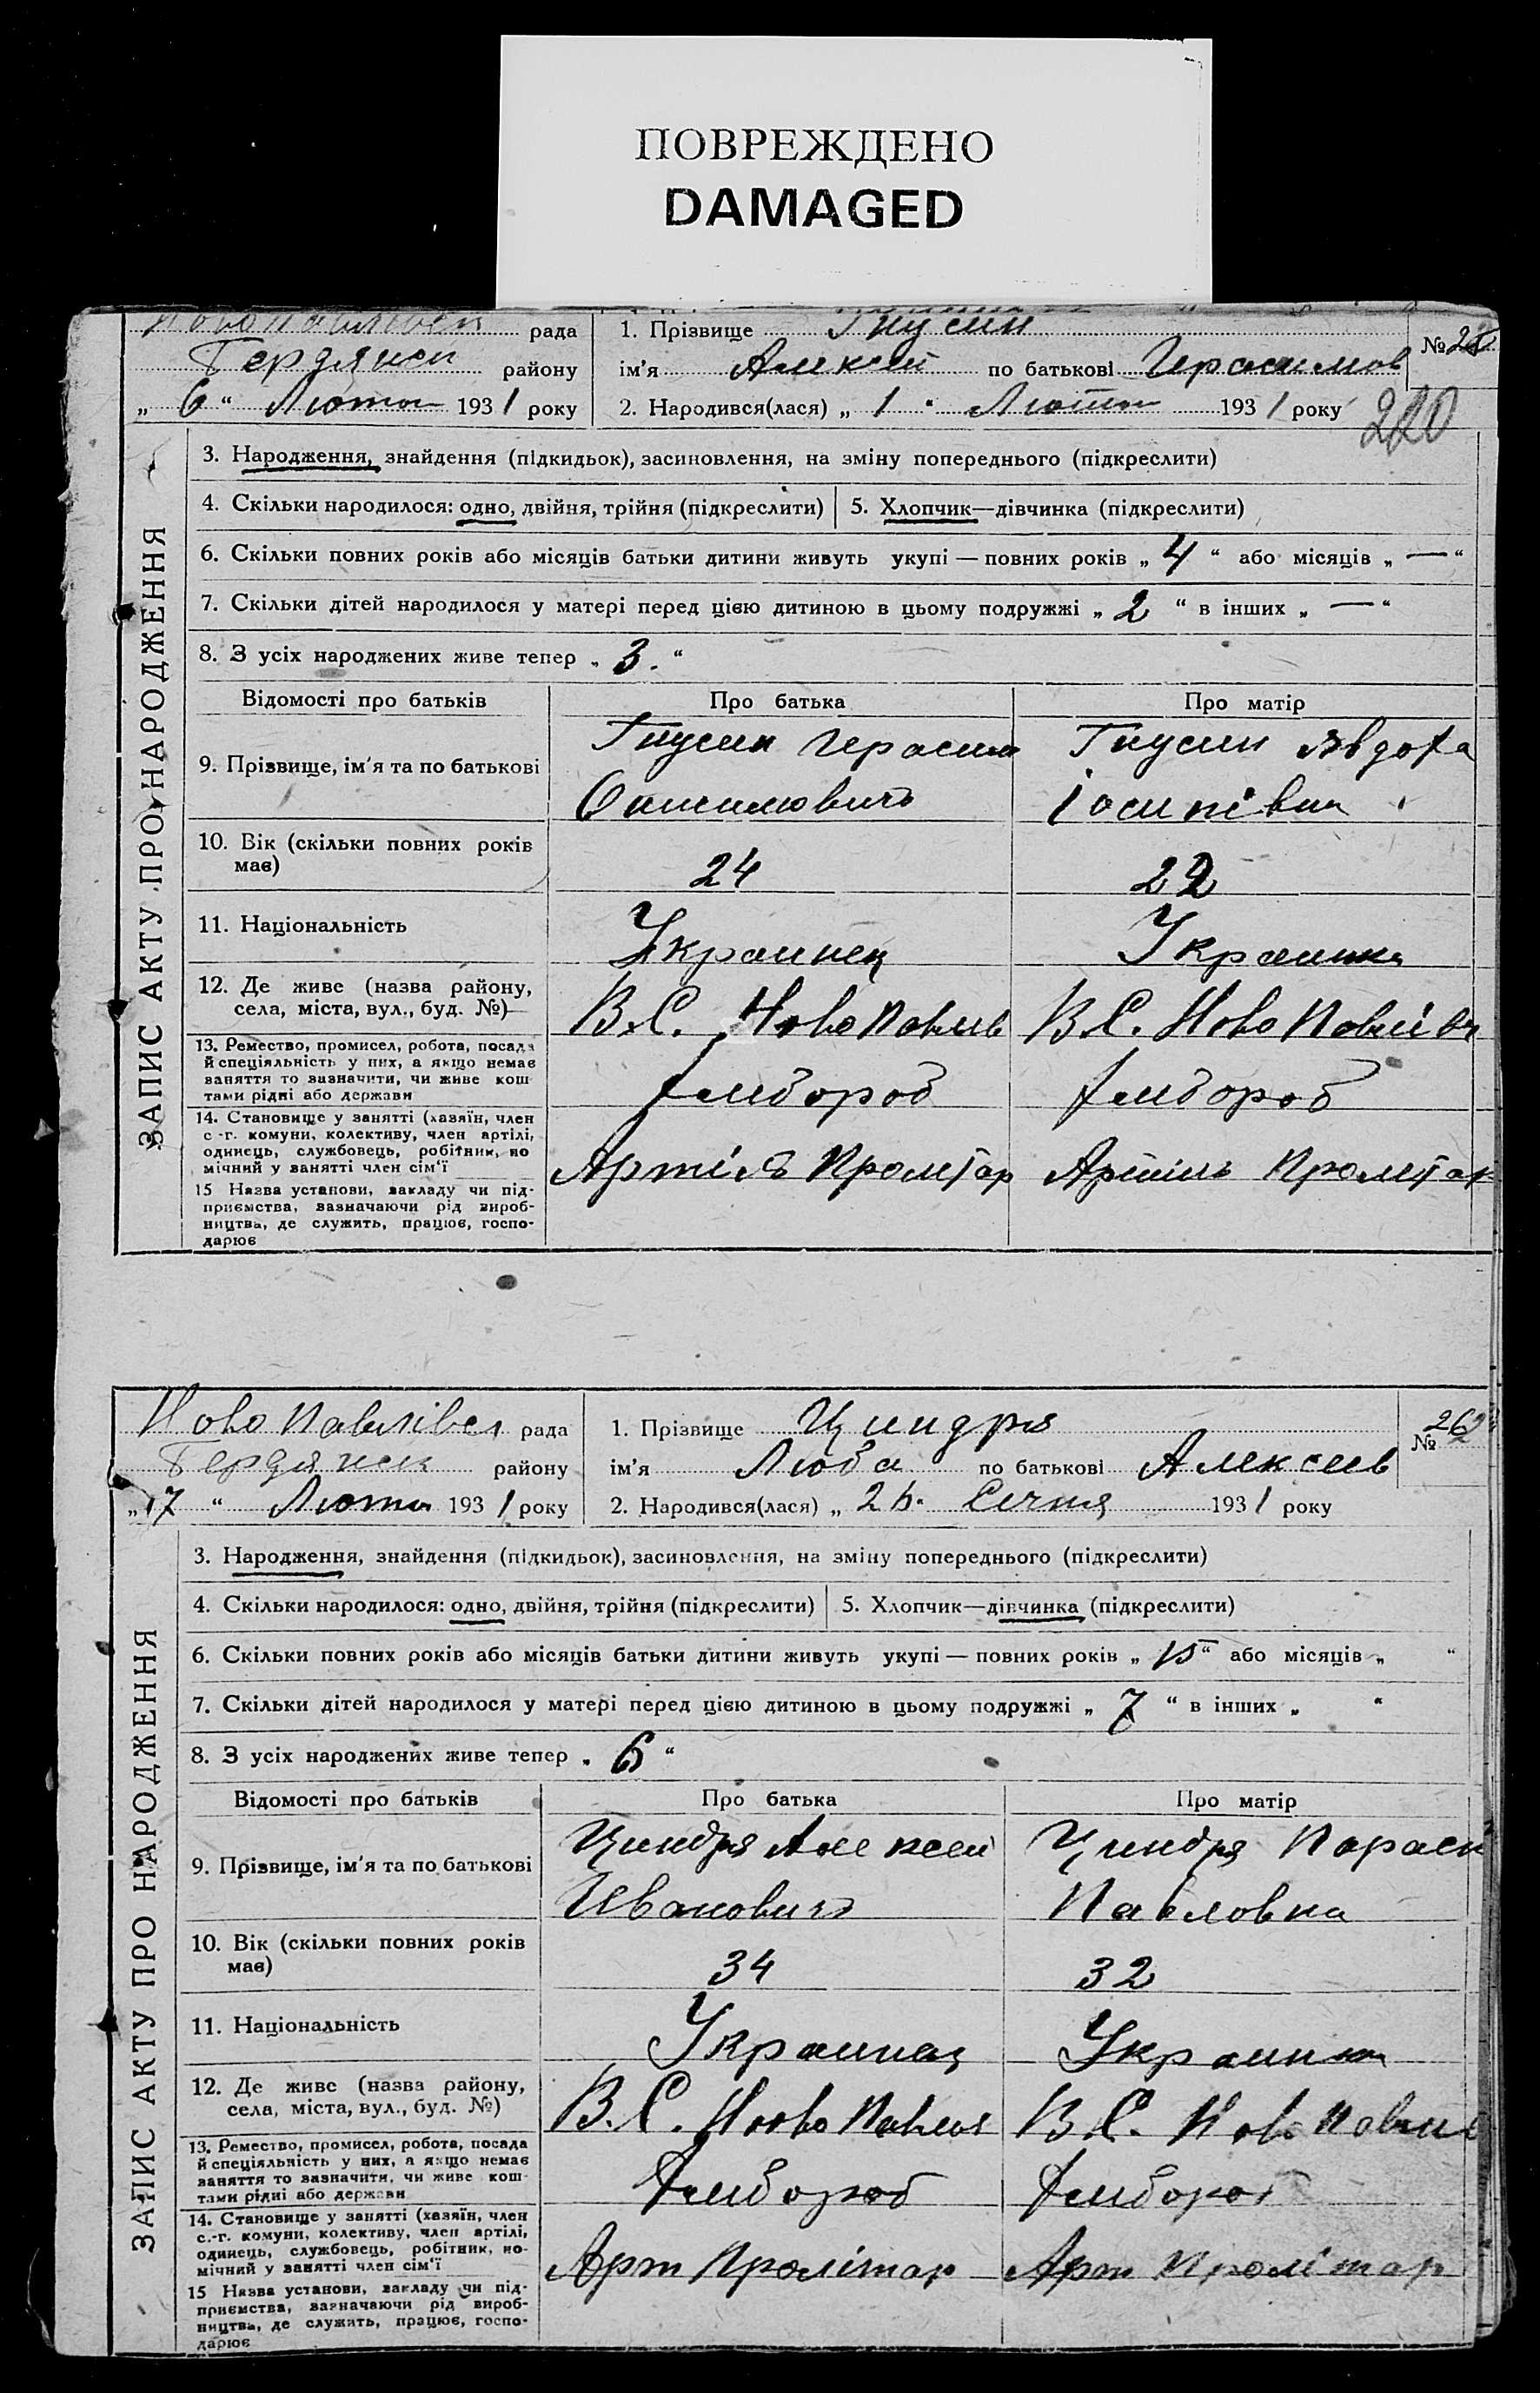 ПОВРЕЖДЕНО
DAMAGED
рада 1. Прізвище Гнусин
Бердянск району ім'я Алексей по батькові Герасимов №
„ 6 “ Лютого 1931 року 2. Народився(лася) „ 1 “ Лютого 1931 року
220
ЗАПИС АКТУ ПРО НАРОДЖЕННЯ
3. Народження, знайдення (підкидьок), засиновлення, на зміну попереднього (підкреслити)
4. Скільки народилося: одно, двійня, трійня (підкреслити) 5. Хлопчик—дівчинка (підкреслити)
6. Скільки повних років або місяців батьки дитини живуть укупі — повних років „ 4 “ або місяців „ — “
7. Скільки дітей народилося у матері перед цією дитиною в цьому подружжі „ 2 “ в інших „ — “
8. З усіх народжених живе тепер „ 3. “
Відомості про батьків Про батька Про матір
9. Прізвище, ім'я та по батькові Гнусин Герасим Гнусин Явдоха
Онисимович Іосипівна
10. Вік (скільки повних років
має) 24 22
11. Національність Украинец Украинка
12. Де живе (назва району,
села, міста, вул., буд. №) В.С. Ново Павлів В.С. Ново Павлівк
13. Ремество, промисел, робота, посада
й спеціяльність у них, а якщо немає
заняття то зазначити, чи живе кош-
тами рідні або держави Хлібороб Хлібороб
14. Становище у занятті (хазяїн, член
с.-г. комуни, колективу, член артілі,
одинець, службовець, робітник, по-
мічний у занятті член сім'ї Артіль Пролетар Артіль Пролетар
15 Назва установи, закладу чи під-
приємства, зазначаючи рід вироб-
ництва, де служить, працює, госпо-
дарює
Ново Павлівск рада 1. Прізвище Циндря № 262
Бердянск району ім'я Люба по батькові Алексеев
„ 17 “ Лютого 1931 року 2. Народився(лася) „ “ Січня 1931 року
ЗАПИС АКТУ ПРО НАРОДЖЕННЯ
3. Народження, знайдення (підкидьок), засиновлення, на зміну попереднього (підкреслити)
4. Скільки народилося: одно, двійня, трійня (підкреслити) 5. Хлопчик—дівчинка (підкреслити)
6. Скільки повних років або місяців батьки дитини живуть укупі — повних років „ 15 “ або місяців „ “
7. Скільки дітей народилося у матері перед цією дитиною в цьому подружжі „ 7 “ в інших „ “
8. З усіх народжених живе тепер „ 6 “
Відомості про батьків Про батька Про матір
9. Прізвище, ім'я та по батькові Циндря Алексей Циндря Параск
Иванович Павловна
10. Вік (скільки повних років
має) 34 32
11. Національність Украинец Украинка
12. Де живе (назва району,
села, міста, вул., буд. №) В.С. Ново Павлів В.С. Ново Павлів
13. Ремество, промисел, робота, посада
й спеціяльність у них, а якщо немає
заняття то зазначити, чи живе кош-
тами рідні або держави Хлібороб Хлібороб
14. Становище у занятті (хазяїн, член
с.-г. комуни, колективу, член артілі,
одинець, службовець, робітник, по-
мічний у занятті член сім'ї Арт Пролітар Арт Пролітар
15 Назва установи, закладу чи під-
приємства, зазначаючи рід вироб-
ництва, де служить, працює, госпо-
дарює